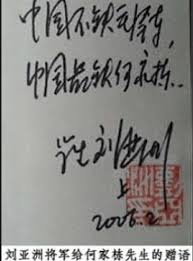 中国不缺毛泽东，
中国最缺何家栋。
刘亚洲
上
2006.2
刘亚洲将军给何家栋先生的赠语